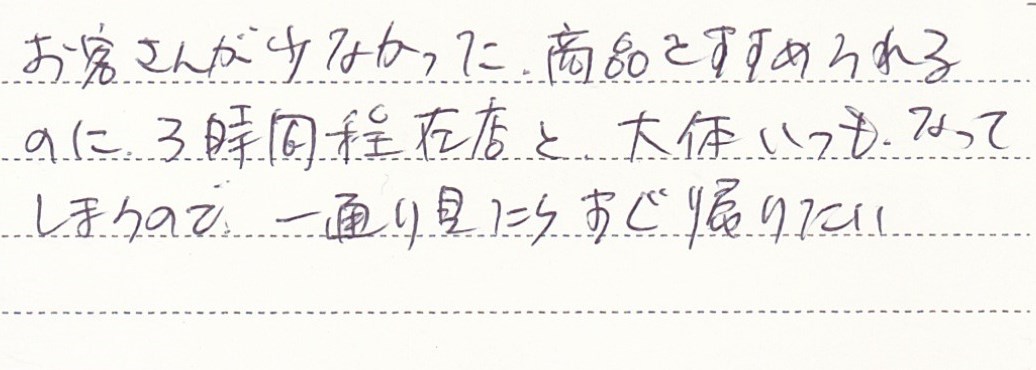 お客さんが少なかった.商品をすすめられる
のに.3時間程在店と、大体いつも.なって
しまうので、一通り見たらすぐ帰りたい